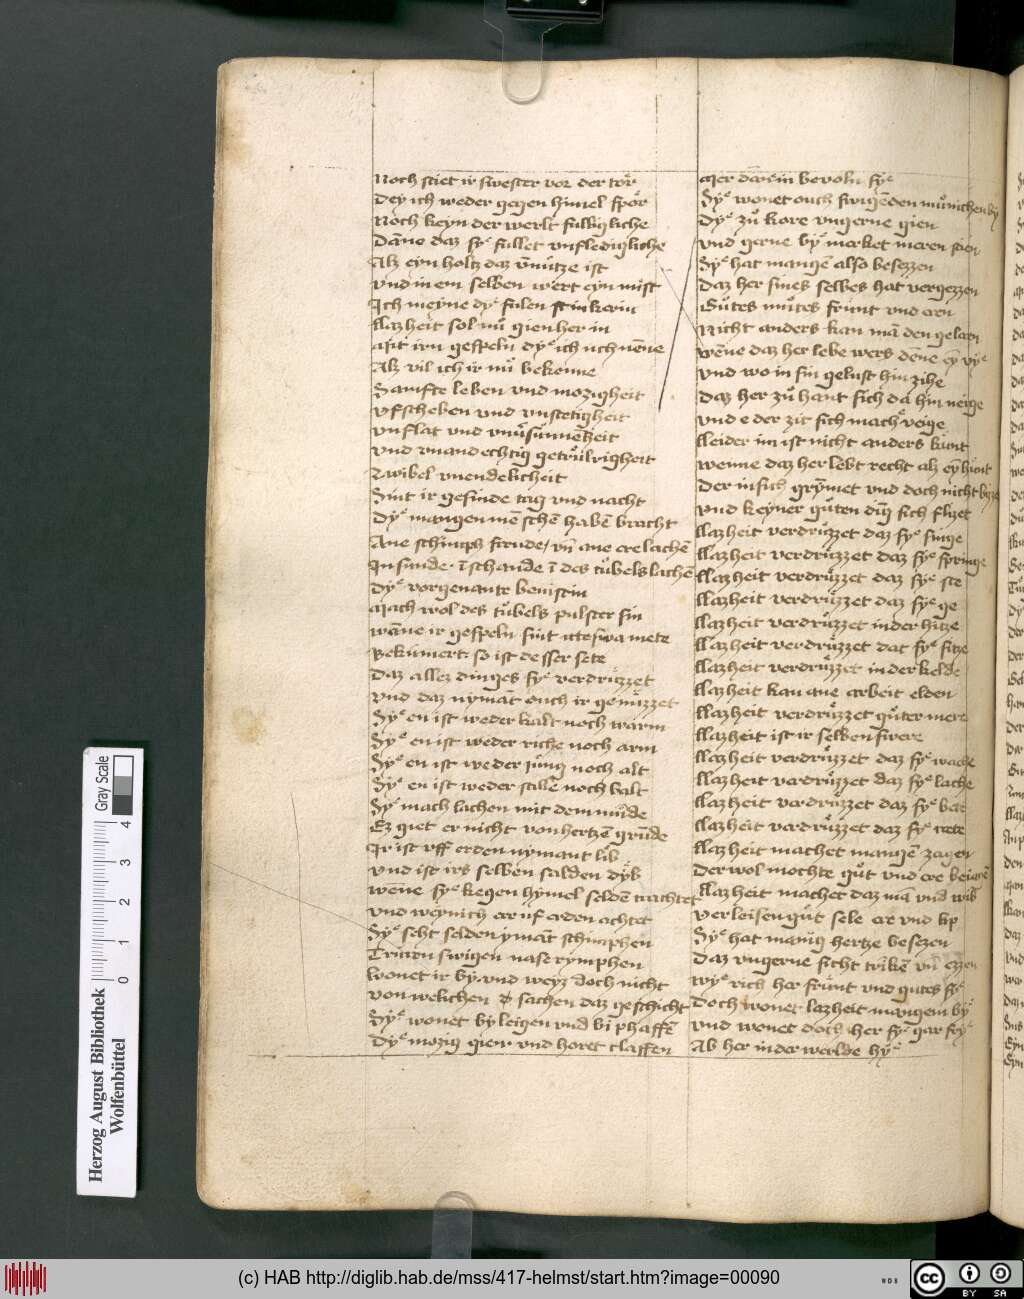 Noch stet ir swester vor der tor
Dey ich weder gegen himel spor
Noch keyn der werlt fulbigliche
Danno daz sy fullet unfledigliche
Alz eyn holtz daz unnutze ist
und in em selben wert eyn mist
Ich meyne dy fulen stinkerin
Lazheit sol nu gien her in
Mit irn gespeln dy ich uch nenne
Alz vil ich ir nu bekenne
Samfte leben und mozigheit
Ufscheben und unstetigheit
unflat und unusunnekeit
und unandechtig getrulrigheit
Twibel unendelicheit
Sint ir gesinde tag und nacht
Dy mangen menschen haben bracht
Ane schimph freude, un ane ere lachen
In sunde · in schande in des tubels lachen
Dy vorgenante
Mach wol des tubels pulster sin
wanne ir gespeln sint
Bekumert: so ist des ser sete
Daz allez dinges sy verdruzzet
und daz nymant ouch ir genuzzet
Sy en ist weder kalt noch warm
Sy en ist weder riche noch arm
Sy en ist weder jung noch alt
Sy en ist weder stille noch balt
Sy mach lachen mit dem munde
Ez giet er nicht von hertzen grunde
Ir ist uff erden nymant lib
und ist irs selben salden dyb
wene sy kegen hymel selden trachtet
und wenich er uf erden achtet
Sy seht selden ymant schimphen
Truren swigen nase rymphen
wonet ir by und weyz doch nicht
von welichen sachen daz geschicht
Sy wonet by leigen und bi phaffen
Dy mozig gien und horet claffen
Mer den ein bevoln sy
Sy wonet ouch swigenden munichen by
Dy zu kore ungerne gien
und gerne by market meren stien
Sy hat mangen also besezzen
Daz her sines selbes hat vergezzen
Gutes mutes frunt und eren
Nicht anders kan man den geleren
wenne daz her lebe wers denne eyn vye
und wo in sin gelust hin zihe
Daz her zu hant sich da hin neige
und e der zit sich mach veige
Leider im ist nicht anders kunt
wenne daz her lebt recht alz eyn hunt
Der in sich grymmet und doch nicht bizze
und keyner guten ding sich flizet
Lazheit verdruzzet daz sy singe
Lazheit verdruzzet daz sy springe
Lazheit verdruzzet daz sy ste
Lazheit verdruzzet daz sy ge
Lazheit verdruzzet in der hitze
Lazheit verdruzzet daz sy sitze
Lazheit verdruzzet in der kelde
Lazheit kan ane arbeit elden
Lazheit verdruzzet guter mere
Lazheit ist ir selben swere
Lazheit verdruzzet daz sy wache
Lazheit verdruzzet daz sy lache
Lazheit verdruzzet daz sy bete
Lazheit verdruzzet daz sy trete
Lazheit machet mangen zagen
Der wol mochte gut und ere beiagen
Lazheit machet daz man und wib
Verleisen gut sele ere und lip
Sy hat manig hertze besezen
Daz ungerne sicht trinken und ezzen
wy rich her frunt und gutes sy
Doch wonet lazheit mangem by
und wonet doch her sy gar fry
Ab her in der werlde hy
Herzog August Bibliothek
Wolfenbüttel
0 1 2 3 4
Gray Scale
(c) HAB http://diglib.hab.de/mss/417-helmst/start.htm?image=00090
WDB
cc
BY SA